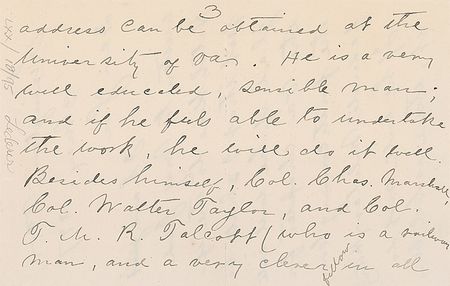 3
address can be obtained at the
University of Va. He is a very
well educated, sensible man;
and if he feels able to undertake
the work, he will do it well.
Besides himself, Col. Chas. Marshall,
Col. Walter Taylor, and Col.
T. M. R. Talcott (who is a railway
man, and a very clever fellow in all